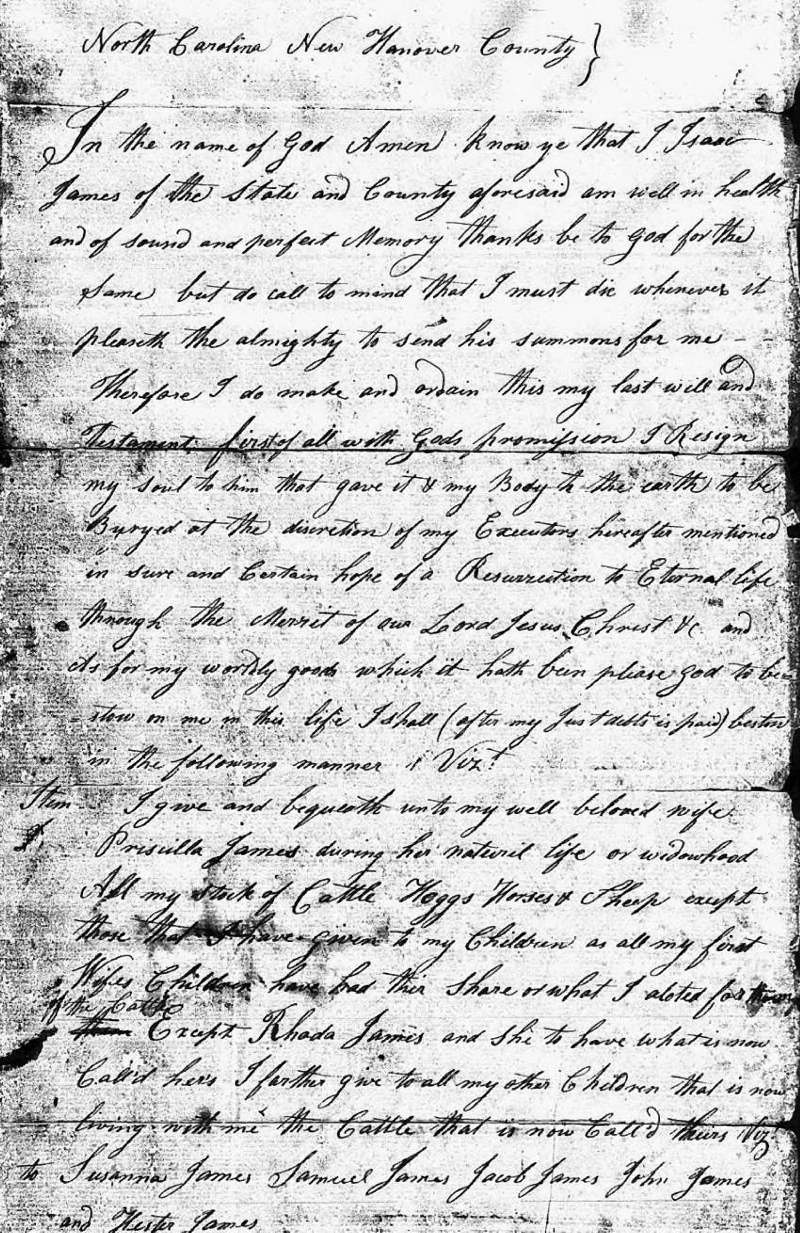 North Carolina New Hanover County}
In the name of God Amen Know ye that I Isaac
James of the State and County aforesaid am well in health
and of sound and perfect Memory thanks be to God for the
Same but do call to mind that I must die whenever it
pleaseth the almighty to send his summons for me
Therefore I do make and ordain this my last will and
Testament first of all with Gods promission I Resign
my soul to him that gave it & my Body to the earth to be
Buryed at the discretion of my Executors hereafter mentioned
in sure and Certain hope of a Resurrection to Eternal life
through the Merret of our Lord Jesus Christ &c and
As for my worldly goods which it hath been please God to be
stow on me in this life I shall (after my Just debts is paid) bestow
in the following manner Vizt
Item I give and bequeath unto my well beloved wife
Priscilla James during her naturel life or widowhood
All my stock of Cattle Hoggs Horses & Sheep except
those that I have given to my Children as all my first
Wifes Children have had thir Share or what I aloted for
of the Cattle
Except Rhoda James and she to have what is now
Call'd hers I farther give to all my other Children that is now
living with me the Cattle that is now Call'd theirs Viz
to Susanna James Samuel James Jacob James John James
and Hester James